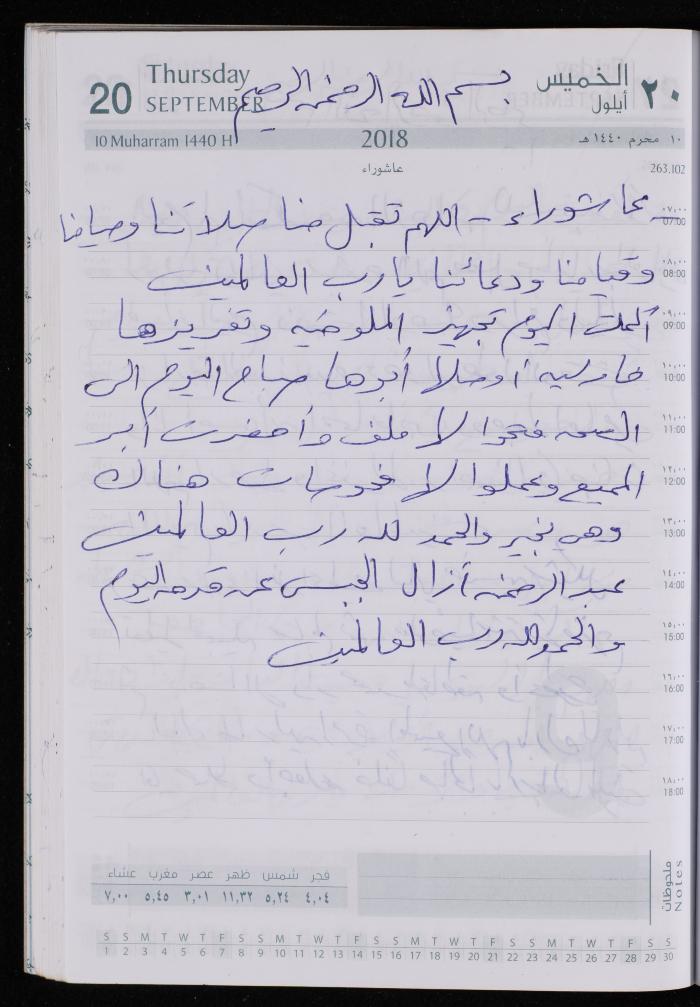 Thursday
20 SEPTEMBER
بسم الله الرحمن الرحيم
الخميس
٢٠ أيلول
10 Muharram 1440 H
2018
١٠ محرم ١٤٤٠ هـ
عاشوراء
263.102
عاشوراء - اللهم تقبل منا صلاتنا وصيامنا
٠٧,٠٠ 07:00
وقيامنا ودعائنا يا رب العالمين
٠٨,٠٠ 08:00
أكملت اليوم تجهيز الملوخيه وتفريزها
٠٩,٠٠ 09:00
أوصلها أبوها صباح اليوم الى
١٠,٠٠ 10:00
الصحه فتحوا لها ملف وأحضرت أبر
١١,٠٠ 11:00
المميع وعملوا لها فحوصات هناك
١٢,٠٠ 12:00
وهي بخير والحمد لله رب العالمين
١٣,٠٠ 13:00
عبد الرحمن أزال الجبس عن قدمه اليوم
١٤,٠٠ 14:00
والحمد لله رب العالمين
١٥,٠٠ 15:00
١٦,٠٠ 16:00
١٧,٠٠ 17:00
١٨,٠٠ 18:00
فجر شمس ظهر عصر مغرب عشاء
٤,٠٤ ٥,٢٤ ١١,٣٢ ٣,٠١ ٥,٤٥ ٧,٠٠
ملحوظات
Notes
S S M T W T F S S M T W T F S S M T W T F S S M T W T F S S
1 2 3 4 5 6 7 8 9 10 11 12 13 14 15 16 17 18 19 20 21 22 23 24 25 26 27 28 29 30